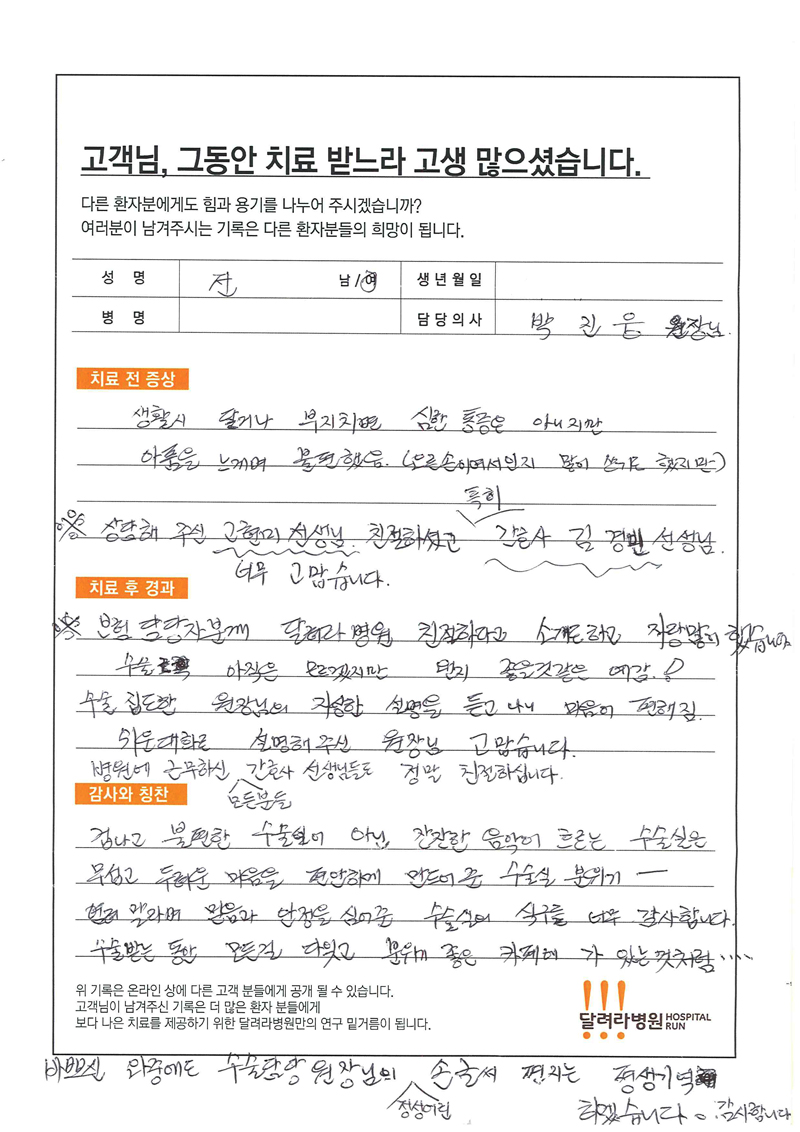 고객님, 그동안 치료 받느라 고생 많으셨습니다.
다른 환자분에게도 힘과 용기를 나누어 주시겠습니까?
여러분이 남겨주시는 기록은 다른 환자분들의 희망이 됩니다.
성 명 전 남/여 생년월일
병 명 담당의사 박 진 웅 원장님.
치료 전 증상
생활시 닿거나 부지치면 심한 통증은 아니지만
아픔을 느끼며 불편했음. (오른손이여서인지 많이 쓰기도 했지만-)
특히
상담해 주신 고현미 선생님. 친절하셨고 간호사 김 경빈 선생님.
너무 고맙습니다.
치료 후 경과
보험 담당자분께 달려라 병원 친절하다고 소개도하고 자랑많이 했습니다
수술 아직은 모르겠지만 먼지 좋을것같은 예감.!
수술 집도한 원장님의 자상한 설명을 듣고 나니 마음이 편해짐.
쉬운대화로 설명해주신 원장님 고맙습니다.
병원에 근무하신 간호사 선생님들도 정말 친절하십니다.
모든분들
감사와 칭찬
겁나고 불편한 수술실이 아닌, 잔잔한 음악이 흐르는 수술실은
무섭고 두려운 마음을 편안하게 만드어준 수술실 분위기 ㅡ
말라며 믿음과 안정을 심어준 수술실의 식구를 너무 감사합니다.
수술받는 동안 모든걸 다잊고 분위기 좋은 카페에 가 있는것처럼....
위 기록은 온라인 상에 다른 고객 분들에게 공개 될 수 있습니다.
고객님이 남겨주신 기록은 더 많은 환자 분들에게
보다 나은 치료를 제공하기 위한 달려라병원만의 연구 밑거름이 됩니다.
달려라병원 HOSPITAL RUN
바쁘신 와중에도 수술담당 원장님의 손글씨 편지는 평생기억
정성어린
하겠습니다. 감사합니다